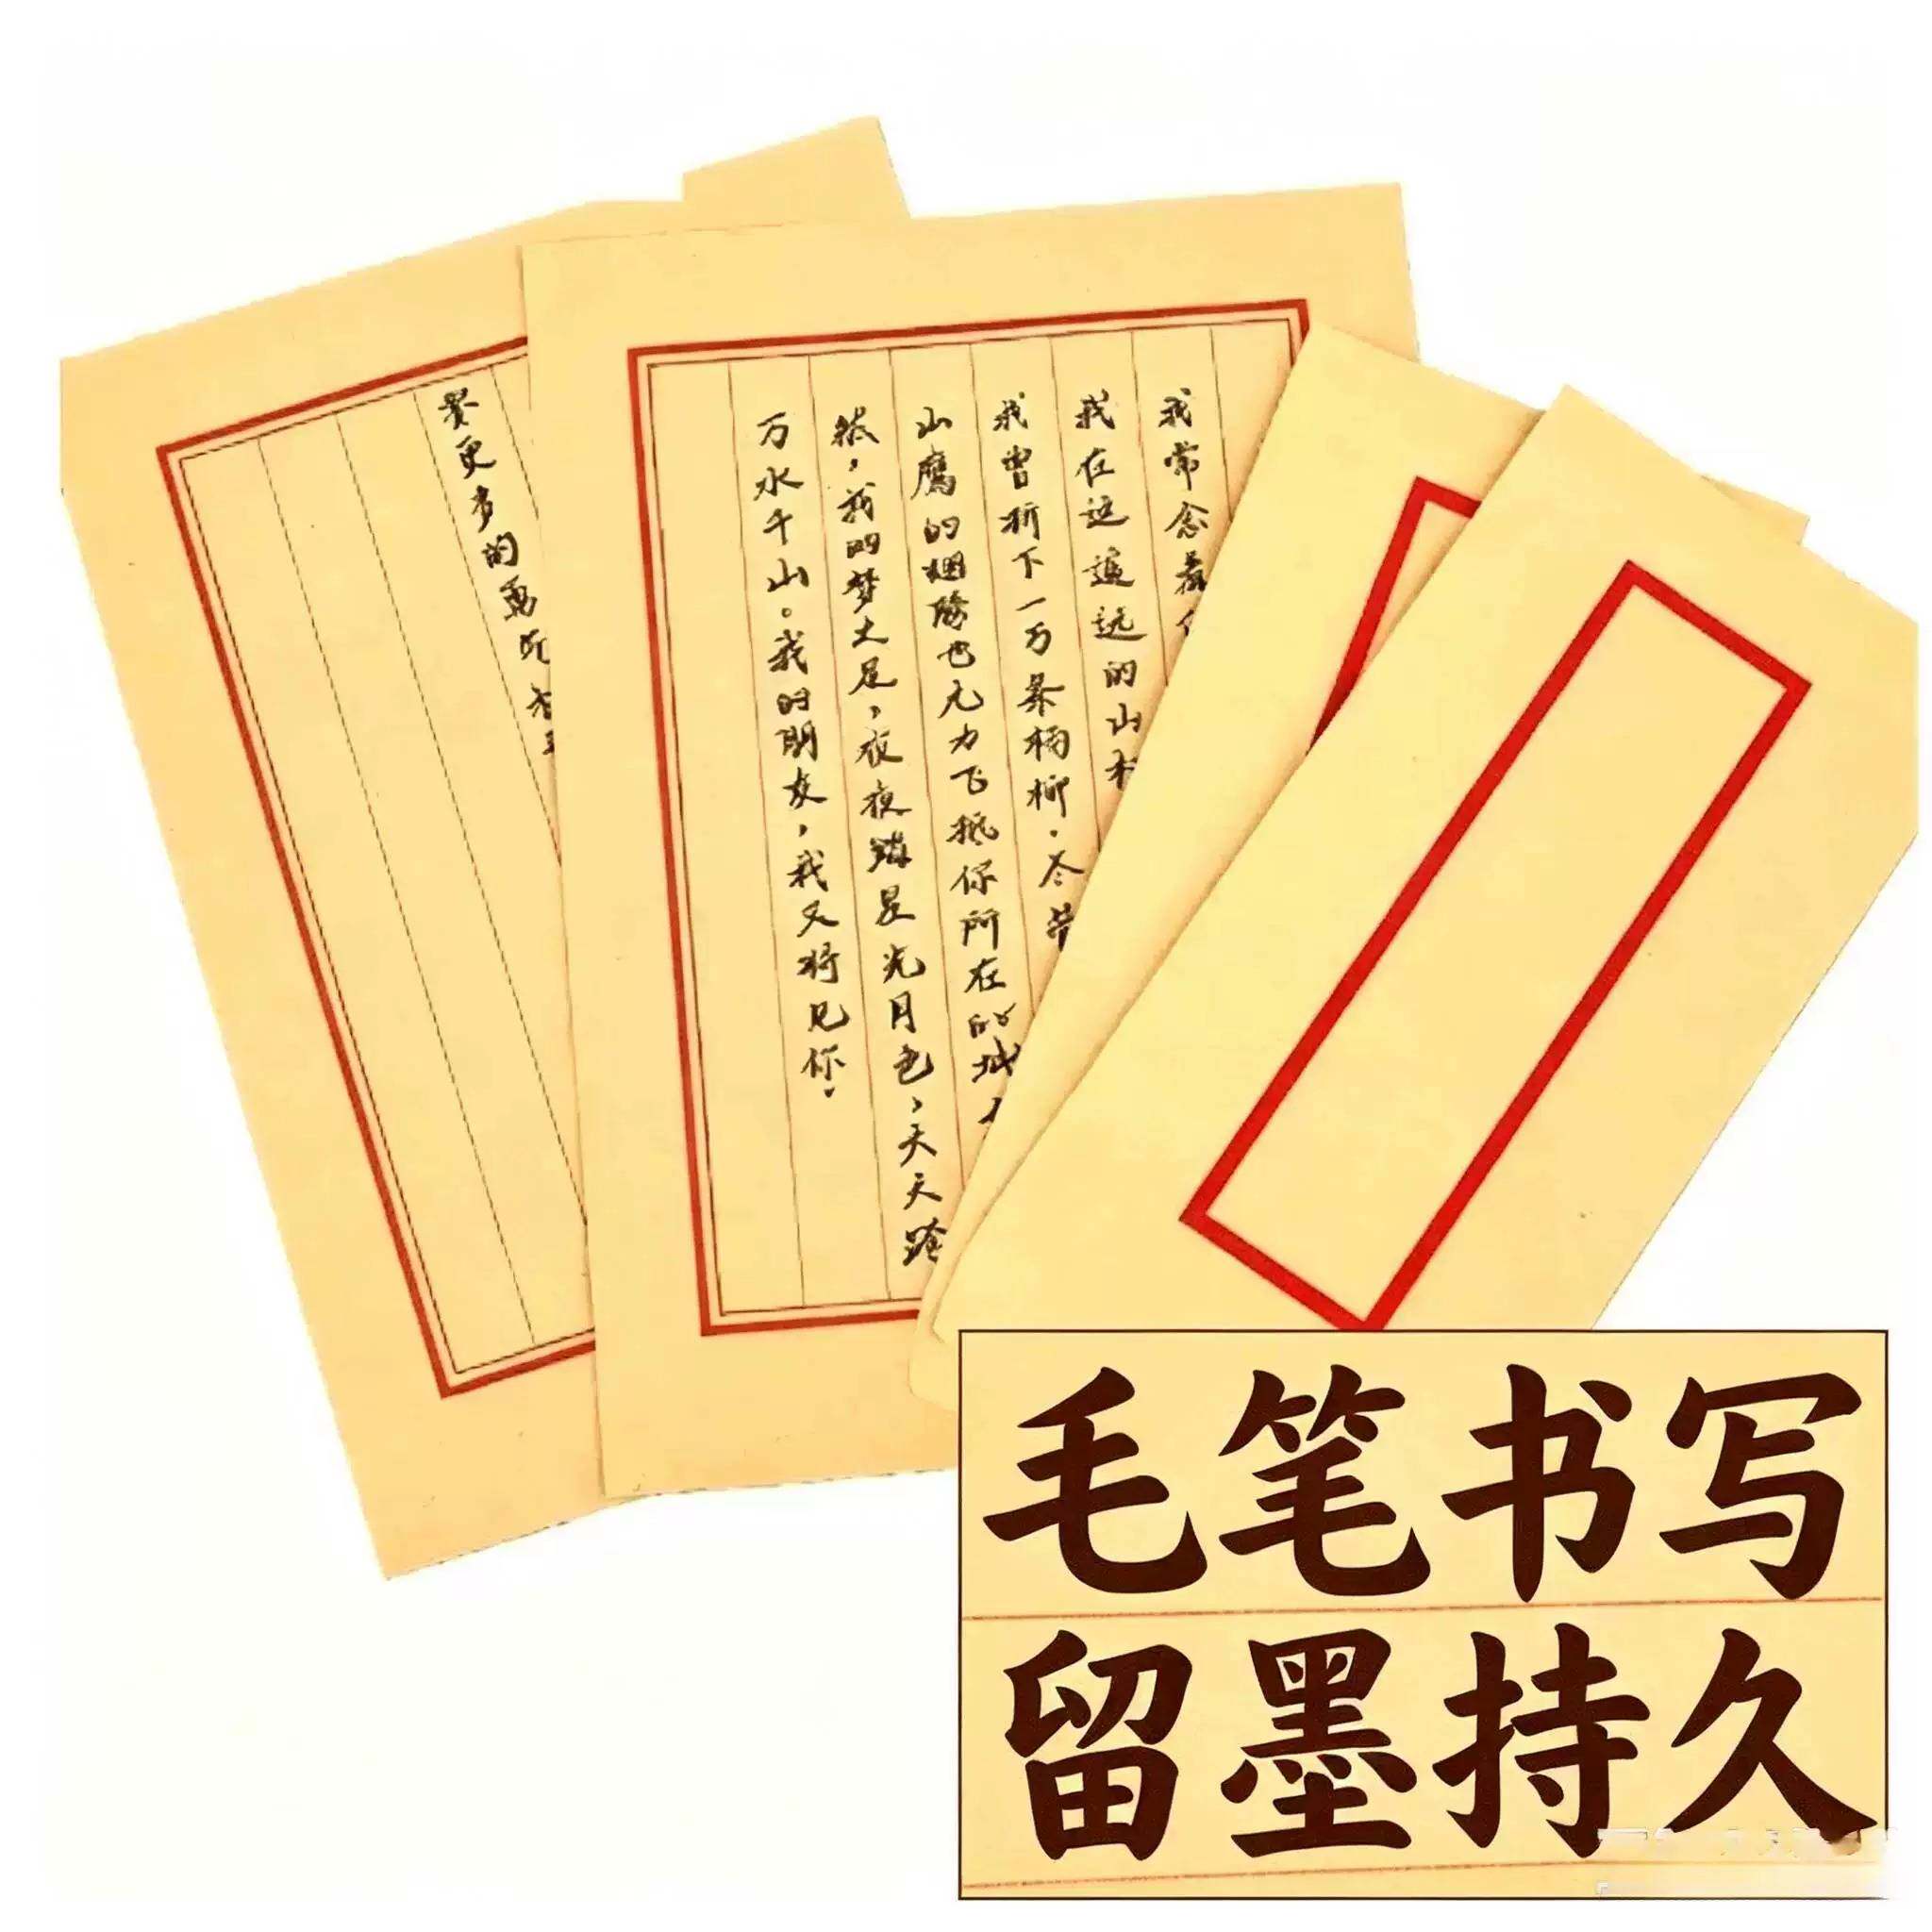 我常念着
我在这遥远的山村
我曾折下一万朵杨柳。尽管
山鹰的翅膀也无力飞抵你所在的城
然，我的梦土足，夜夜踏星光月色，天天跨
万水千山。我的朋友，我又将见你。
要更多的勇
毛笔书写
留墨持久